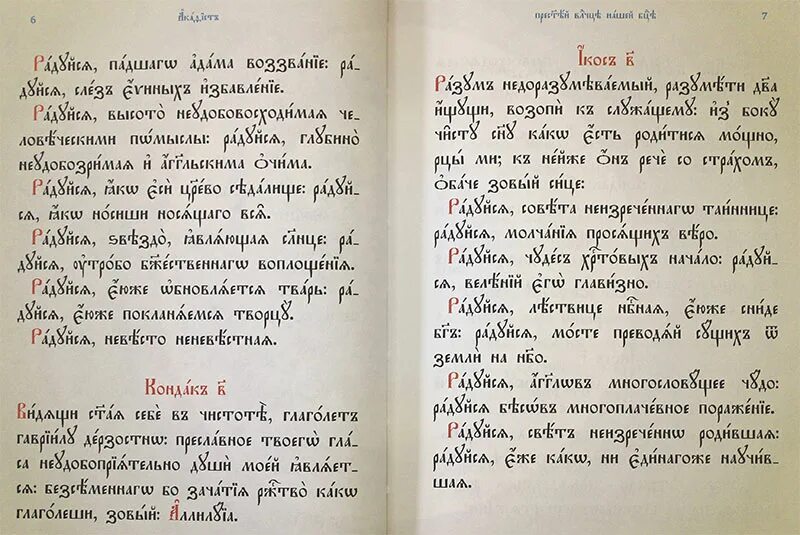 6
А҆ка́ѳїстъ
Ра́дуйсѧ, па́дшагѡ а҆да́ма воззва́нїе: ра́-
дуйсѧ, сле́зъ є҆́ѵиныхъ и҆збавле́нїе.
Ра́дуйсѧ, высото̀ неудобовосходи́маѧ че-
ловѣ́ческими по́мыслы: ра́дуйсѧ, глубино̀
неудобозри́маѧ и҆ а҆́гг҃льскима ѻ҆чи́ма.
Ра́дуйсѧ, ꙗ҆́кѡ є҆сѝ цр҃е́во сѣда́лище: ра́дуй-
сѧ, ꙗ҆́кѡ но́сиши носѧ́щаго всѧ̑.
Ра́дуйсѧ, ѕвѣздо̀, ꙗ҆влѧ́ющаѧ сл҃нце: ра́-
дуйсѧ, ᲂу҆тро́бо бж҃е́ственнагѡ воплоще́нїѧ.
Ра́дуйсѧ, є҆́юже ѡ҆бновлѧ́етсѧ тва́рь: ра́-
дуйсѧ, є҆́юже покланѧ́емсѧ творцу̀.
Ра́дуйсѧ, невѣ́сто неневѣ́стнаѧ.
Конда́къ в҃
Ви́дѧщи ст҃а́ѧ себѐ въ чистотѣ̀, глаго́летъ
гаврїи́лу де́рзостнѡ: пресла́вное твоегѡ̀ гла́-
са неудобоприѧ́тельно душѝ мое́й ꙗ҆влѧ́ет-
сѧ: безсѣ́меннагѡ бо зача́тїѧ ржⷭ҇тво̀ ка́кѡ
глаго́леши, зовы́й: А҆ллилу́їа.
прест҃ѣ́й влⷣчцѣ на́шей бцⷣѣ
7
І҆́косъ в҃
Ра́зумъ недоразумѣва́емый, разумѣ́ти дв҃а
и҆́щущи, возопѝ къ служа́щему: и҆з̾ бо́ку
чи́сту сн҃у ка́кѡ є҆́сть роди́тисѧ мо́щно,
рцы́ ми; къ не́йже ѻ҆́нъ речѐ со стра́хомъ,
ѻ҆ба́че зовы́й си́це:
Ра́дуйсѧ, совѣ́та неизрече́ннагѡ таи́ннице:
ра́дуйсѧ, молча́нїѧ просѧ́щихъ вѣ́ро.
Ра́дуйсѧ, чуде́съ хрⷭ҇то́выхъ нача́ло: ра́дуй-
сѧ, велѣ́нїй є҆гѡ̀ глави́зно.
Ра́дуйсѧ, лѣ́ствице нбⷭ҇наѧ, є҆́юже сни́де
бг҃ъ: ра́дуйсѧ, мо́сте преводѧ́й су́щихъ ѿ
землѝ на нб҃о.
Ра́дуйсѧ, а҆́гг҃лѡвъ многослову́щее чу́до:
ра́дуйсѧ бѣсѡ́въ многоплаче́вное пораже́нїе.
Ра́дуйсѧ, свѣ́тъ неизрече́ннѡ роди́вшаѧ:
ра́дуйсѧ, є҆́же ка́кѡ, ни є҆ди́нагоже научи́в-
шаѧ.